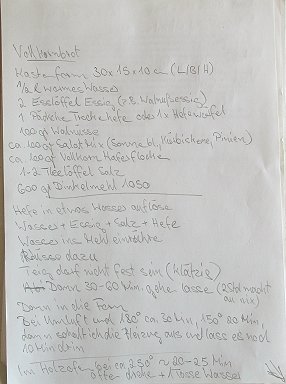 Vollkornbrot
Kastenform 30x15x10cm (L/B/H)
1/2 l warmes Wasser
2 Esslöffel Essig (z.B. Walnußessig)
1 Päckche Trockehefe oder 1x Hefewürfel
100 gr Walnüsse
ca. 100gr Salat Mix (Sonnenbl., Kürbiskerne, Pinien)
ca. 100gr Vollkorn Haferflocke
1-2 Teelöffel Salz
600 gr Dinkelmehl 1050
Hefe in etwas Wasser auflöse
Wasser + Essig + Salz + Hefe
Wasser ins Mehl einrühre
Nüsse dazu
Teig darf nicht fest sein (klätzig)
Dann 30-60 Min. gehe lasse (2Std macht
au nix)
Dann in die Form
Bei Umluft und 180° ca. 30 Min, 150° 80 Min,
dann schalt ich die Heizung aus und lass es noch
10 Min drin
Im Holzofen bei ca 250° ~ 80-85 Min
öfter drehe + Tasse Wasser